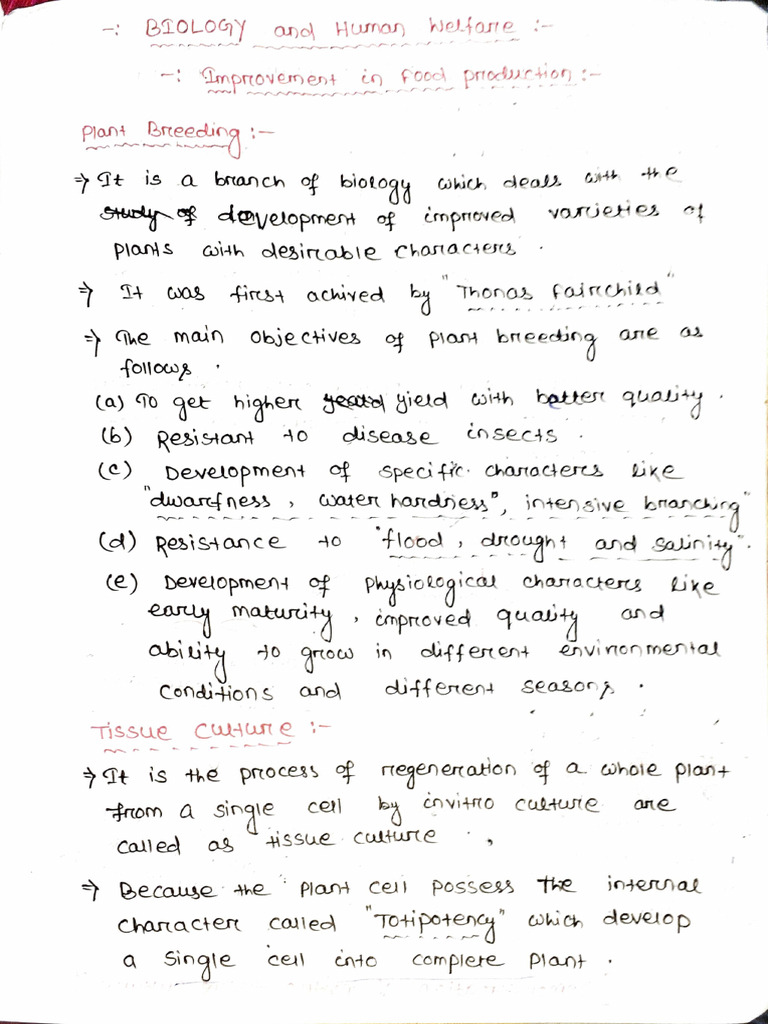 -: BIOLOGY and Human Welfare :-
-: Improvement in food production :-
Plant Breeding :-
⇒ It is a branch of biology which deals with the
study of development of improved varieties of
plants with desirable characters .
⇒ It was first achived by "Thonas fairchild"
⇒ The main objectives of plant breeding are as
follows .
(a) To get higher yield with better quality .
(b) Resistant to disease insects .
(c) Development of specific characters like
"dwarfness , water hardness", intensive branching"
(d) Resistance to "flood , drought and salinity".
(e) Development of physiological characters like
early maturity , improved quality and
ability to grow in different environmental
conditions and different seasons .
Tissue Culture :-
⇒ It is the process of regeneration of a whole plant
from a single cell by invitro culture are
called as tissue culture .
⇒ Because the plant cell possess the internal
character called "Totipotency" which develop
a single cell into complete plant .